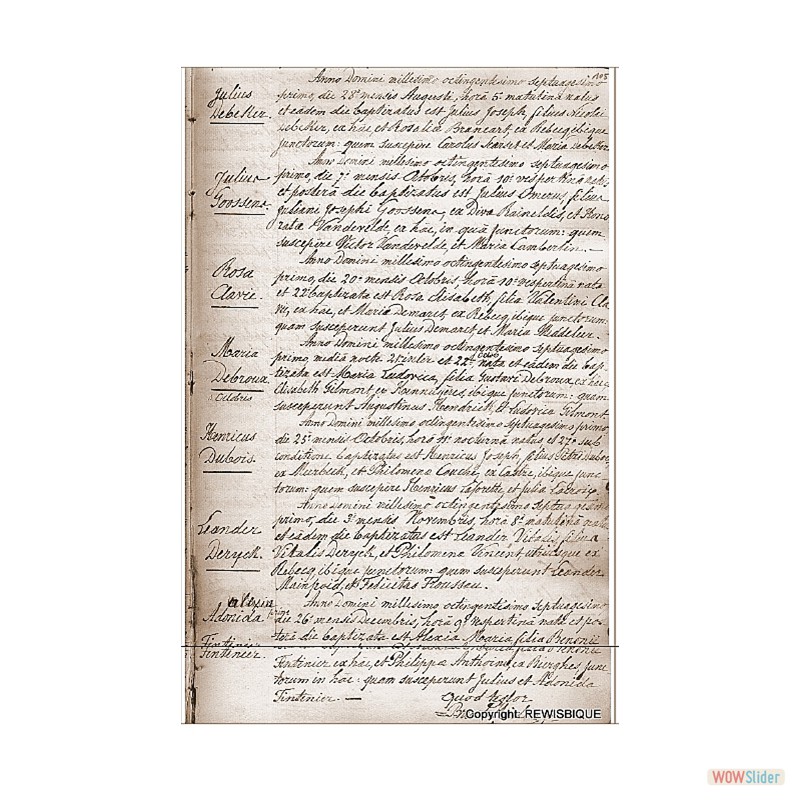 105
Anno Domini millesimo octingentesimo septuagesimo
Julius
Debeker.
primo, die 28ª mensis Augusti, horâ 5ª matutinâ natus
et eâdem die baptizatus est Julius Joseph, filius Nicolai
Debeker, ex hac, et Rosalia Brancart, ex Rebecq ibique
junctorum: quem suscepere Carolus et Maria Debeker
Anno Domini millesimo octingentesimo septuagesimo
Julius
Goossens.
primo, die 7ª mensis Octobris, horâ 10ª vespertinâ natus
et posterâ die baptizatus est Julius Omerus, filius
Juliani Josephi Goossens, ex Diva Raineldis, et Hono
rata Vandevelde, ex hac, in quâ junctorum: quem
suscepire Victor Vandevelde, et Maria Lambertin. —
Anno Domini millesimo octingentesimo septuagesimo
Rosa
Clavie.
primo, die 20ª mensis Octobris, horâ 10ª vespertinâ nata
et 22ª baptizata est Rosa Elisabeth, filia Valentini Cla
vie, ex hac, et Maria Demaret, ex Rebecq, ibique junctorum:
quam susceperunt Julius Demaret, et Maria
Anno Domini millesimo octingentesimo septuagesimo
Maria
Debroux.
Octobris
primo, mediâ nocte 21ª inter et 22ª, nata et eâdem die bap-
tizata est Maria Ludovica, filia Gustavi Debroux, ex hac, et
Elisabeth Gilmont, ex ibique junctorum: quam
susceperunt Augustinus Hendrickx, et Ludovica Gilmont.
Anno Domini millesimo octingentesimo septuagesimo primo,
Henricus
Dubois.
die 25ª mensis Octobris, horâ 11ª nocturnâ natus et 27ª sub
conditione baptizatus est Henricus Joseph, filius Petri Dubois,
ex et Philomena ex Castre, ibique junc-
torum: quem suscepire Henricus et Julia Lacroix.
Anno Domini millesimo octingentesimo septuagesimo
Leander
Deryck.
primo, die 3ª mensis Novembris, horâ 8ª matutinâ natus
et eâdem die baptizatus est Leander Vitalis, filius
Vitalis Deryck, et Philomena Vincent, utriusque ex
Rebecq, ibique junctorum: quem susceperunt Leander
et Felicitas
Anno Domini millesimo octingentesimo septuagesimo
Alexia
Adonida
Tintinier
Tintinier.
primo
die 26ª mensis Decembris, horâ 9ª vespertinâ nata et pos-
terâ die baptizata est Alexia Maria filia Benonii
Tintinier ex hac, et Philippa Anthoine, ex Bierghes, junc
torum in hac: quam susceperunt Julius et Adonida
Tintinier. —
Quod testor
Copyright. REWISBIQUE
WOWSlider